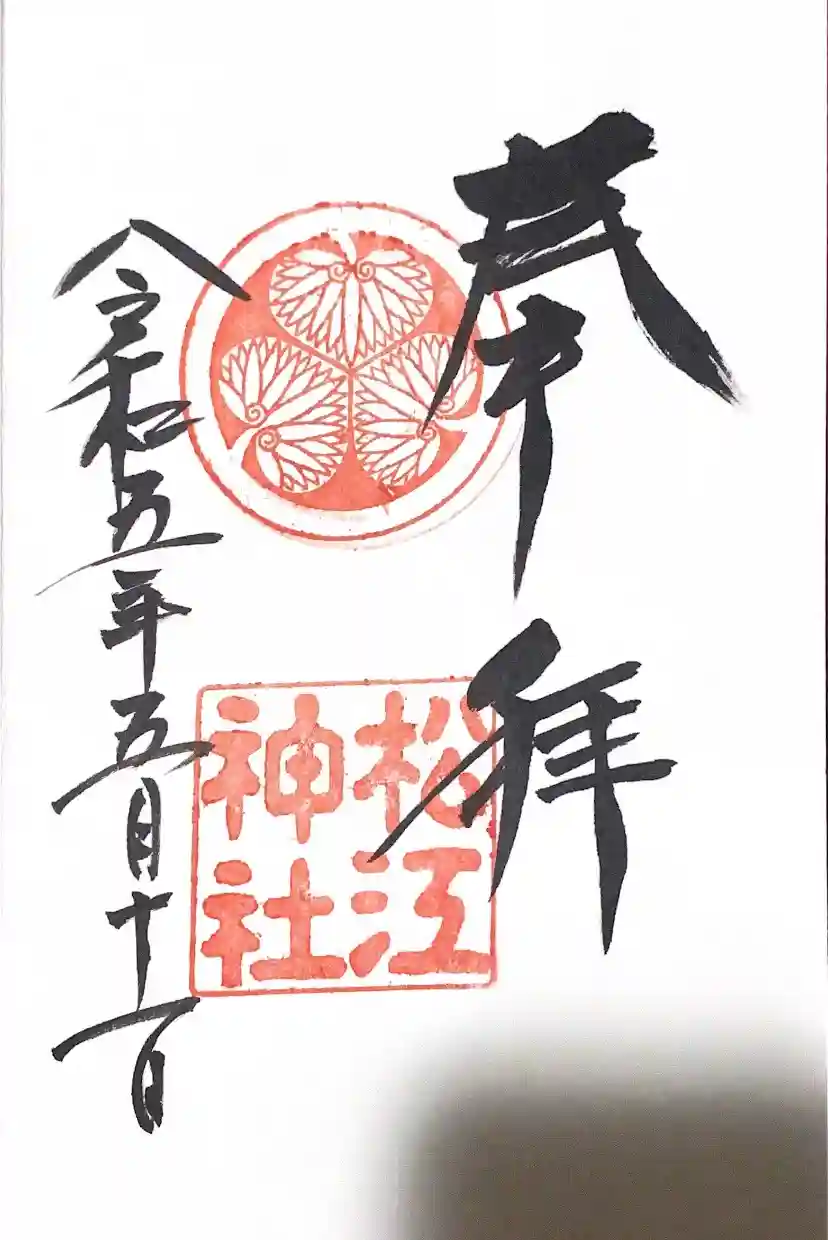 奉拝
松江
神社
令和五年五月十一日